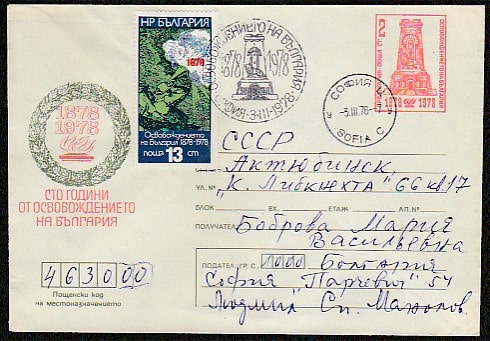 НР БЪЛГАРИЯ
1878
Освобождението
на България 1878-1978
поща 13 ст
ОСВОБОЖДЕНИЕТО НА БЪЛГАРИЯ
1878 1978
СОФИЯ • 3-III-1978
СОФИЯ Ц
-3.III.78-7
SOFIA C
2
ОСВОБОЖДЕНИЕТО НА БЪЛГАРИЯ
1878 1978
1878
1978
СТО ГОДИНИ
ОТ ОСВОБОЖДЕНИЕТО
НА БЪЛГАРИЯ
СССР
Актюбинск,
УЛ. №
"К. Либкнехта" 66 кв 17
БЛОК ВХ. ЕТАЖ АП. №
ПОЛУЧАТЕЛ
Боброва Мария
Васильевна
463000
Пощенски код
на местоназначението
ПОДАТЕЛ ГР. С. 1000 Болгария
София "Парчевич" 54
Людмил Сп.